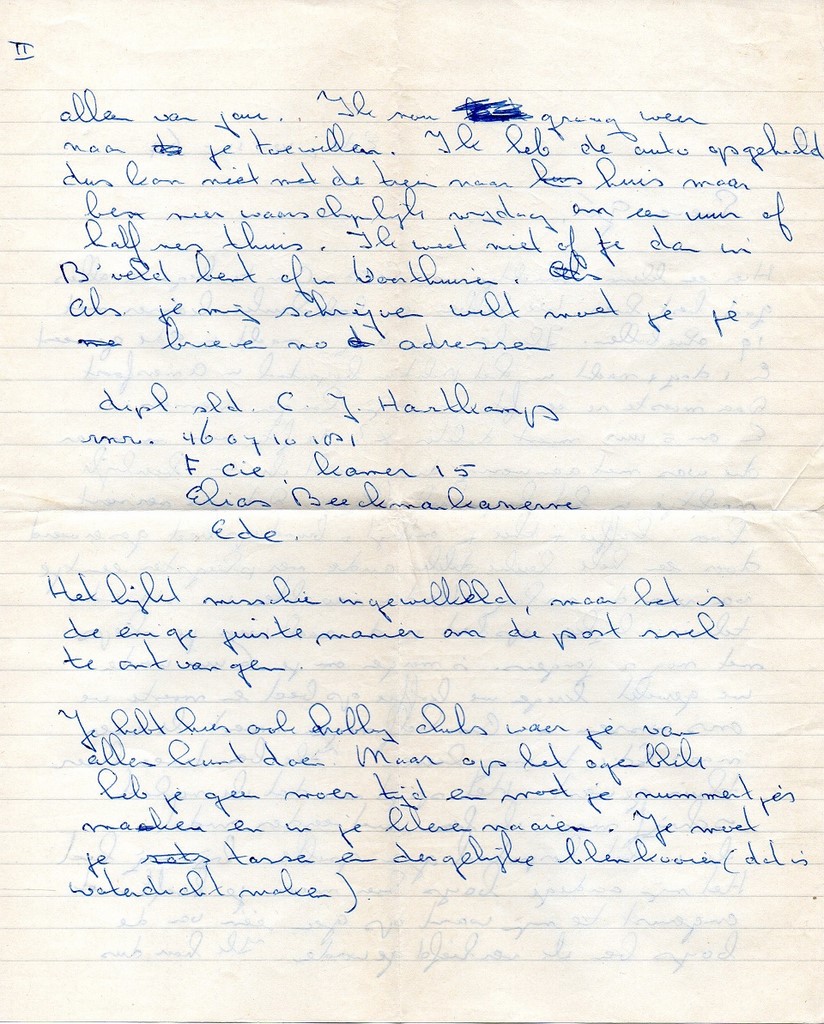 II
allen van jou.. Ik zou graag weer
naar je toe willen. Ik heb de auto opgehaald
dus kom niet met de trein naar huis maar
ben zeer waarschijnlijk vrijdag om een uur of
half zes thuis. Ik weet niet of je dan in
B'veld bent of in Voorthuizen.
Als je mij schrijven wilt moet je je
brieve zo adressen
dipl. sld. C. J. Hartkamp
rnr. 46 07 10 181
F cie, kamer 15
Elias Beeckmankazerne
Ede.
Het lijkt misschie ingewikkeld, maar het is
de enige juiste manier om de post snel
te ontvangen.
Je hebt hier ook hobby clubs waar je van
alles kunt doen. Maar op het ogenblik
heb je geen moer tijd en moet je nummertjes
maken en in je kleren naaien. Je moet
je tasse en dergelijke blenkooien (dat is
waterdicht maken).